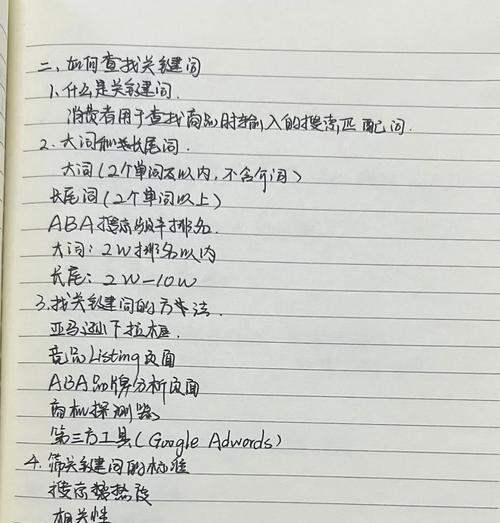 二、如何查找关键词
1.什么是关键词.
消费者用于查找商品时输入的搜索匹配词.
2.大词和长尾词.
大词(2个单词及以内,不含介词)
长尾词(2个单词以上)
ABA搜索频率排名.
大词:2W排名以内
长尾:2W-10W
3.找关键词的方法.
亚马逊下拉框.
竞品Listing页面
ABA品牌分析页面
商机探测器
第三方工具(Google Adwords)
4.筛关键词的标准
搜索热度
相关性